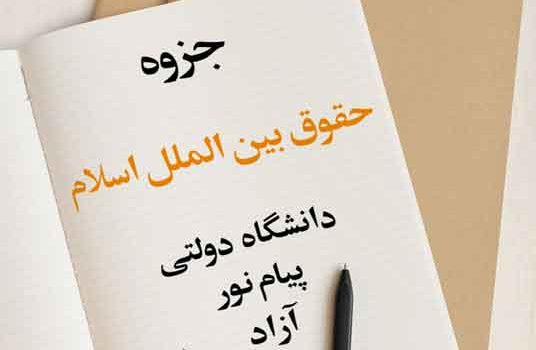 جزوه
حقوق بین الملل اسلام
دانشگاه دولتی
پیام نور
آزاد